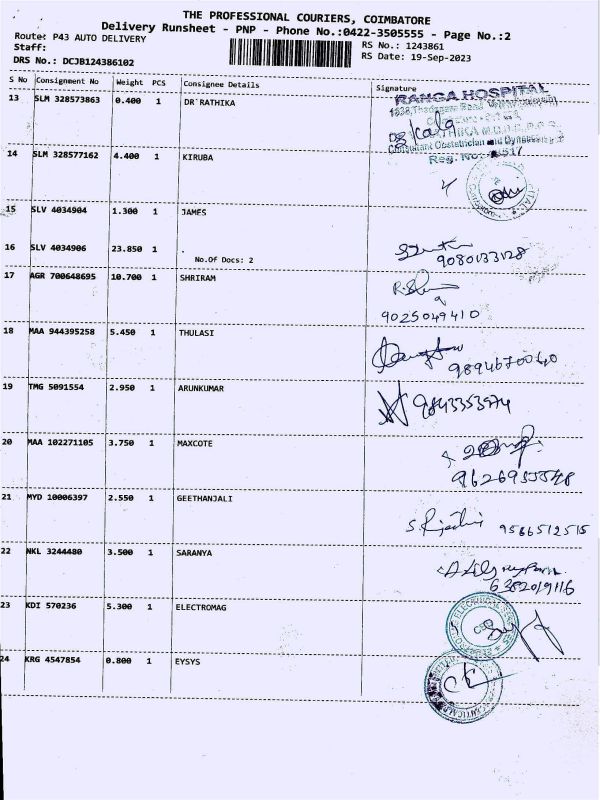 THE PROFESSIONAL COURIERS, COIMBATORE
Delivery Runsheet - PNP - Phone No.:0422-3505555 - Page No.:2
Route: P43 AUTO DELIVERY
RS No.: 1243861
Staff:
RS Date: 19-Sep-2023
DRS No.: DCJB124386102
S No Consignment No Weight PCS Consignee Details Signature
RANGA HOSPITAL
13 SLM 328573863 0.400 1 DR RATHIKA
Consultant Obstetrician and
Reg. No:
14 SLM 328577162 4.400 1 KIRUBA
15 SLV 4034904 1.300 1 JAMES
16 SLV 4034906 23.850 1 .
No.Of Docs: 2
9080133128
17 AGR 700648695 10.700 1 SHRIRAM
9025049410
18 MAA 944395258 5.450 1 THULASI
9894670040
19 TMG 5091554 2.950 1 ARUNKUMAR
9843353974
20 MAA 102271105 3.750 1 MAXCOTE
21 MYD 10006397 2.550 1 GEETHANJALI
9566512515
22 NKL 3244480 3.500 1 SARANYA
6382019116
23 KDI 570236 5.300 1 ELECTROMAG
24 KRG 4547854 0.800 1 EYSYS